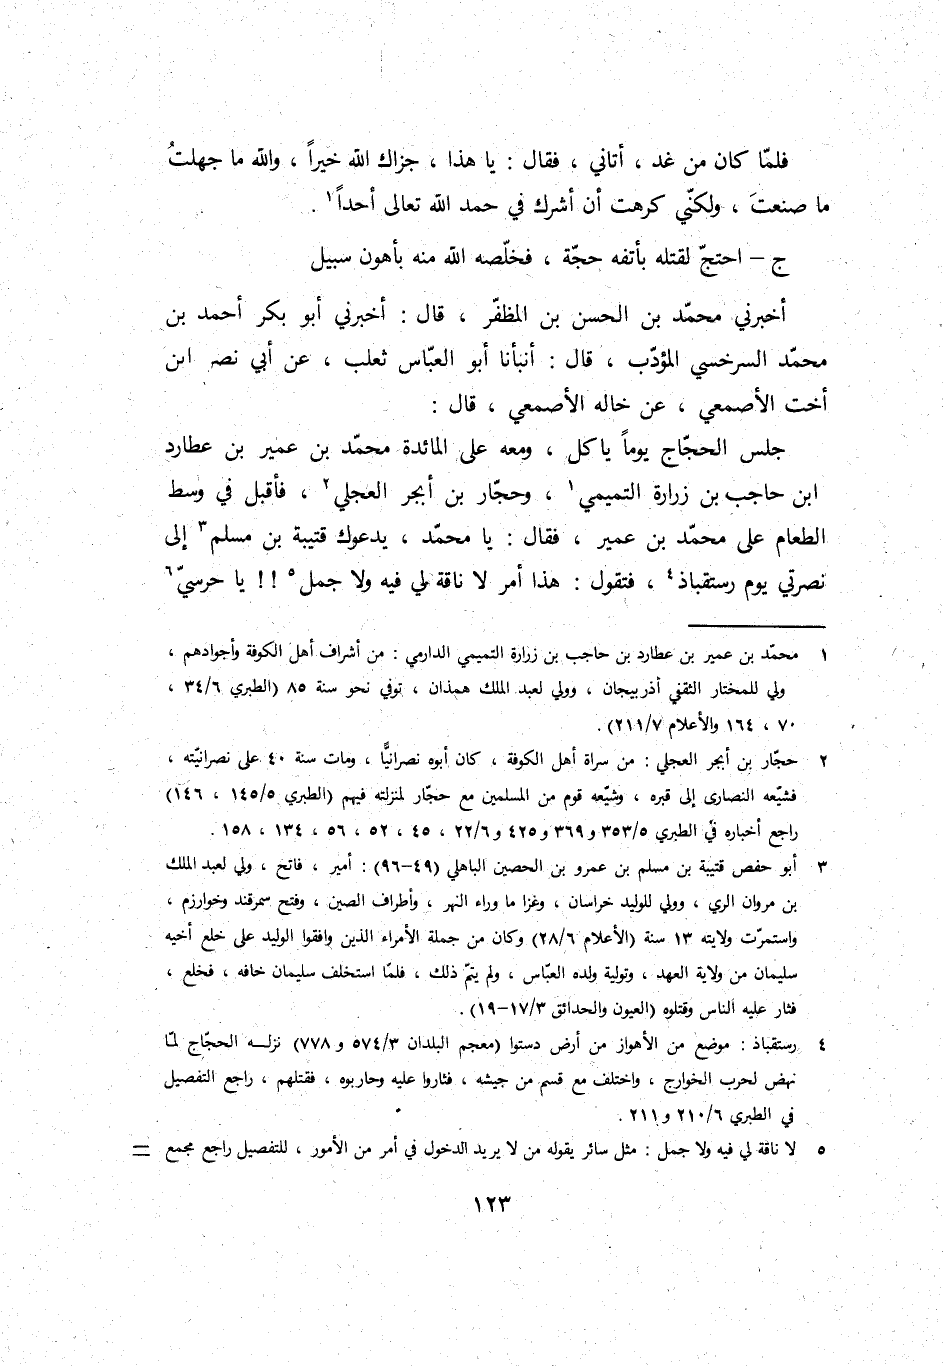 فلمّا كان من غد ، أتاني ، فقال : يا هذا ، جزاك الله خيراً ، والله ما جهلتُ
ما صنعتَ ، ولكنّي كرهت أن أشرك في حمد الله تعالى أحداً١ .
ج – احتجّ لقتله بأتفه حجّة ، فخلّصه الله منه بأهون سبيل
أخبرني محمّد بن الحسن بن المظفّر ، قال : أخبرني أبو بكر أحمد بن
محمّد السرخسي المؤدّب ، قال : أنبأنا أبو العبّاس ثعلب ، عن أبي نصر ابن
أخت الأصمعي ، عن خاله الأصمعي ، قال :
جلس الحجّاج يوماً يأكل ، ومعه على المائدة محمّد بن عمير بن عطارد
ابن حاجب بن زرارة التميمي١ ، وحجّار بن أبجر العجلي٢ ، فأقبل في وسط
الطعام على محمّد بن عمير ، فقال : يا محمّد ، يدعوك قتيبة بن مسلم٣ إلى
نصرتي يوم رستقباذ٤ ، فتقول : هذا أمر لا ناقة لي فيه ولا جمل٥ !! يا حرسيّ٦
١ محمّد بن عمير بن عطارد بن حاجب بن زرارة التميمي الدارمي : من أشراف أهل الكوفة وأجوادهم ،
ولي للمختار الثقفي أذربيجان ، وولي لعبد الملك همذان ، توفي نحو سنة ٨٥ (الطبري ٣٤/٦ ،
٧٠ ، ١٦٤ والأعلام ٢١١/٧) .
٢ حجّار بن أبجر العجلي : من سراة أهل الكوفة ، كان أبوه نصرانيًّا ، ومات سنة ٤٠ على نصرانيّته ،
فشيّعه النصارى إلى قبره ، وشيّعه قوم من المسلمين مع حجّار لمنزلته فيهم (الطبري ١٤٥/٥ ، ١٤٦)
راجع أخباره في الطبري ٣٥٣/٥ و ٣٦٩ و ٤٢٥ و ٢٢/٦ ، ٤٥ ، ٥٢ ، ٥٦ ، ١٣٤ ، ١٥٨ .
٣ أبو حفص قتيبة بن مسلم بن عمرو بن الحصين الباهلي (٤٩–٩٦) : أمير ، فاتح ، ولي لعبد الملك
بن مروان الري ، وولي للوليد خراسان ، وغزا ما وراء النهر ، وأطراف الصين ، وفتح سمرقند وخوارزم ،
واستمرّت ولايته ١٣ سنة (الأعلام ٢٨/٦) وكان من جملة الأمراء الذين وافقوا الوليد على خلع أخيه
سليمان من ولاية العهد ، وتولية ولده العبّاس ، ولم يتمّ ذلك ، فلمّا استخلف سليمان خافه ، فخلع ،
فثار عليه الناس وقتلوه (العيون والحدائق ١٧/٣–١٩) .
٤ رستقباذ : موضع من الأهواز من أرض دستوا (معجم البلدان ٥٧٤/٣ و ٧٧٨) نزلـه الحجّاج لمّا
نهض لحرب الخوارج ، واختلف مع قسم من جيشه ، فثاروا عليه وحاربوه ، فقتلهم ، راجع التفصيل
في الطبري ٢١٠/٦ و ٢١١ .
٥ لا ناقة لي فيه ولا جمل : مثل سائر يقوله من لا يريد الدخول في أمر من الأمور ، للتفصيل راجع مجمع =
١٢٣